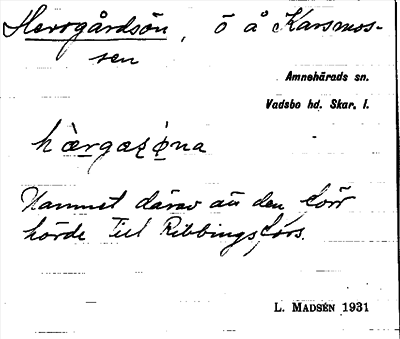 Herrgårdsön, ö å Karsmos-
sen
Amnehärads sn.
Vadsbo hd. Skar. l.
hæ̀rgaʐø̣na
Namnet därav att den förr
hörde till Ribbingsfors.
L. MADSÉN 1931